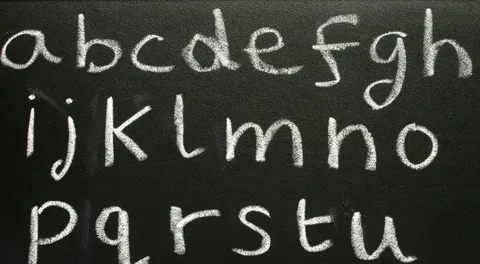 abcdefgh
ijklmno
pqrstu